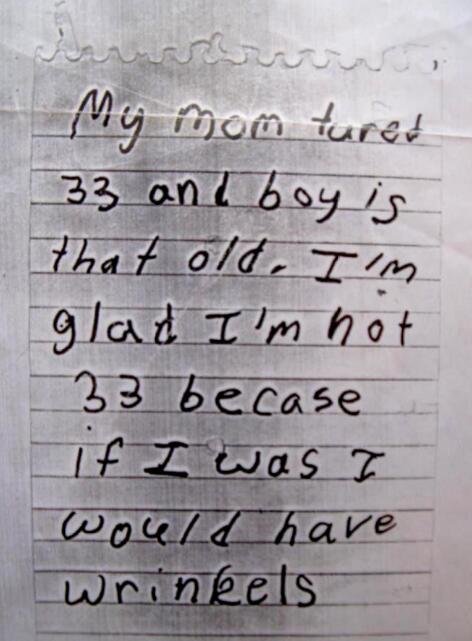 My mom turet
33 and boy is
that old. I'm
glad I'm not
33 becase
if I was I
would have
wrinkels